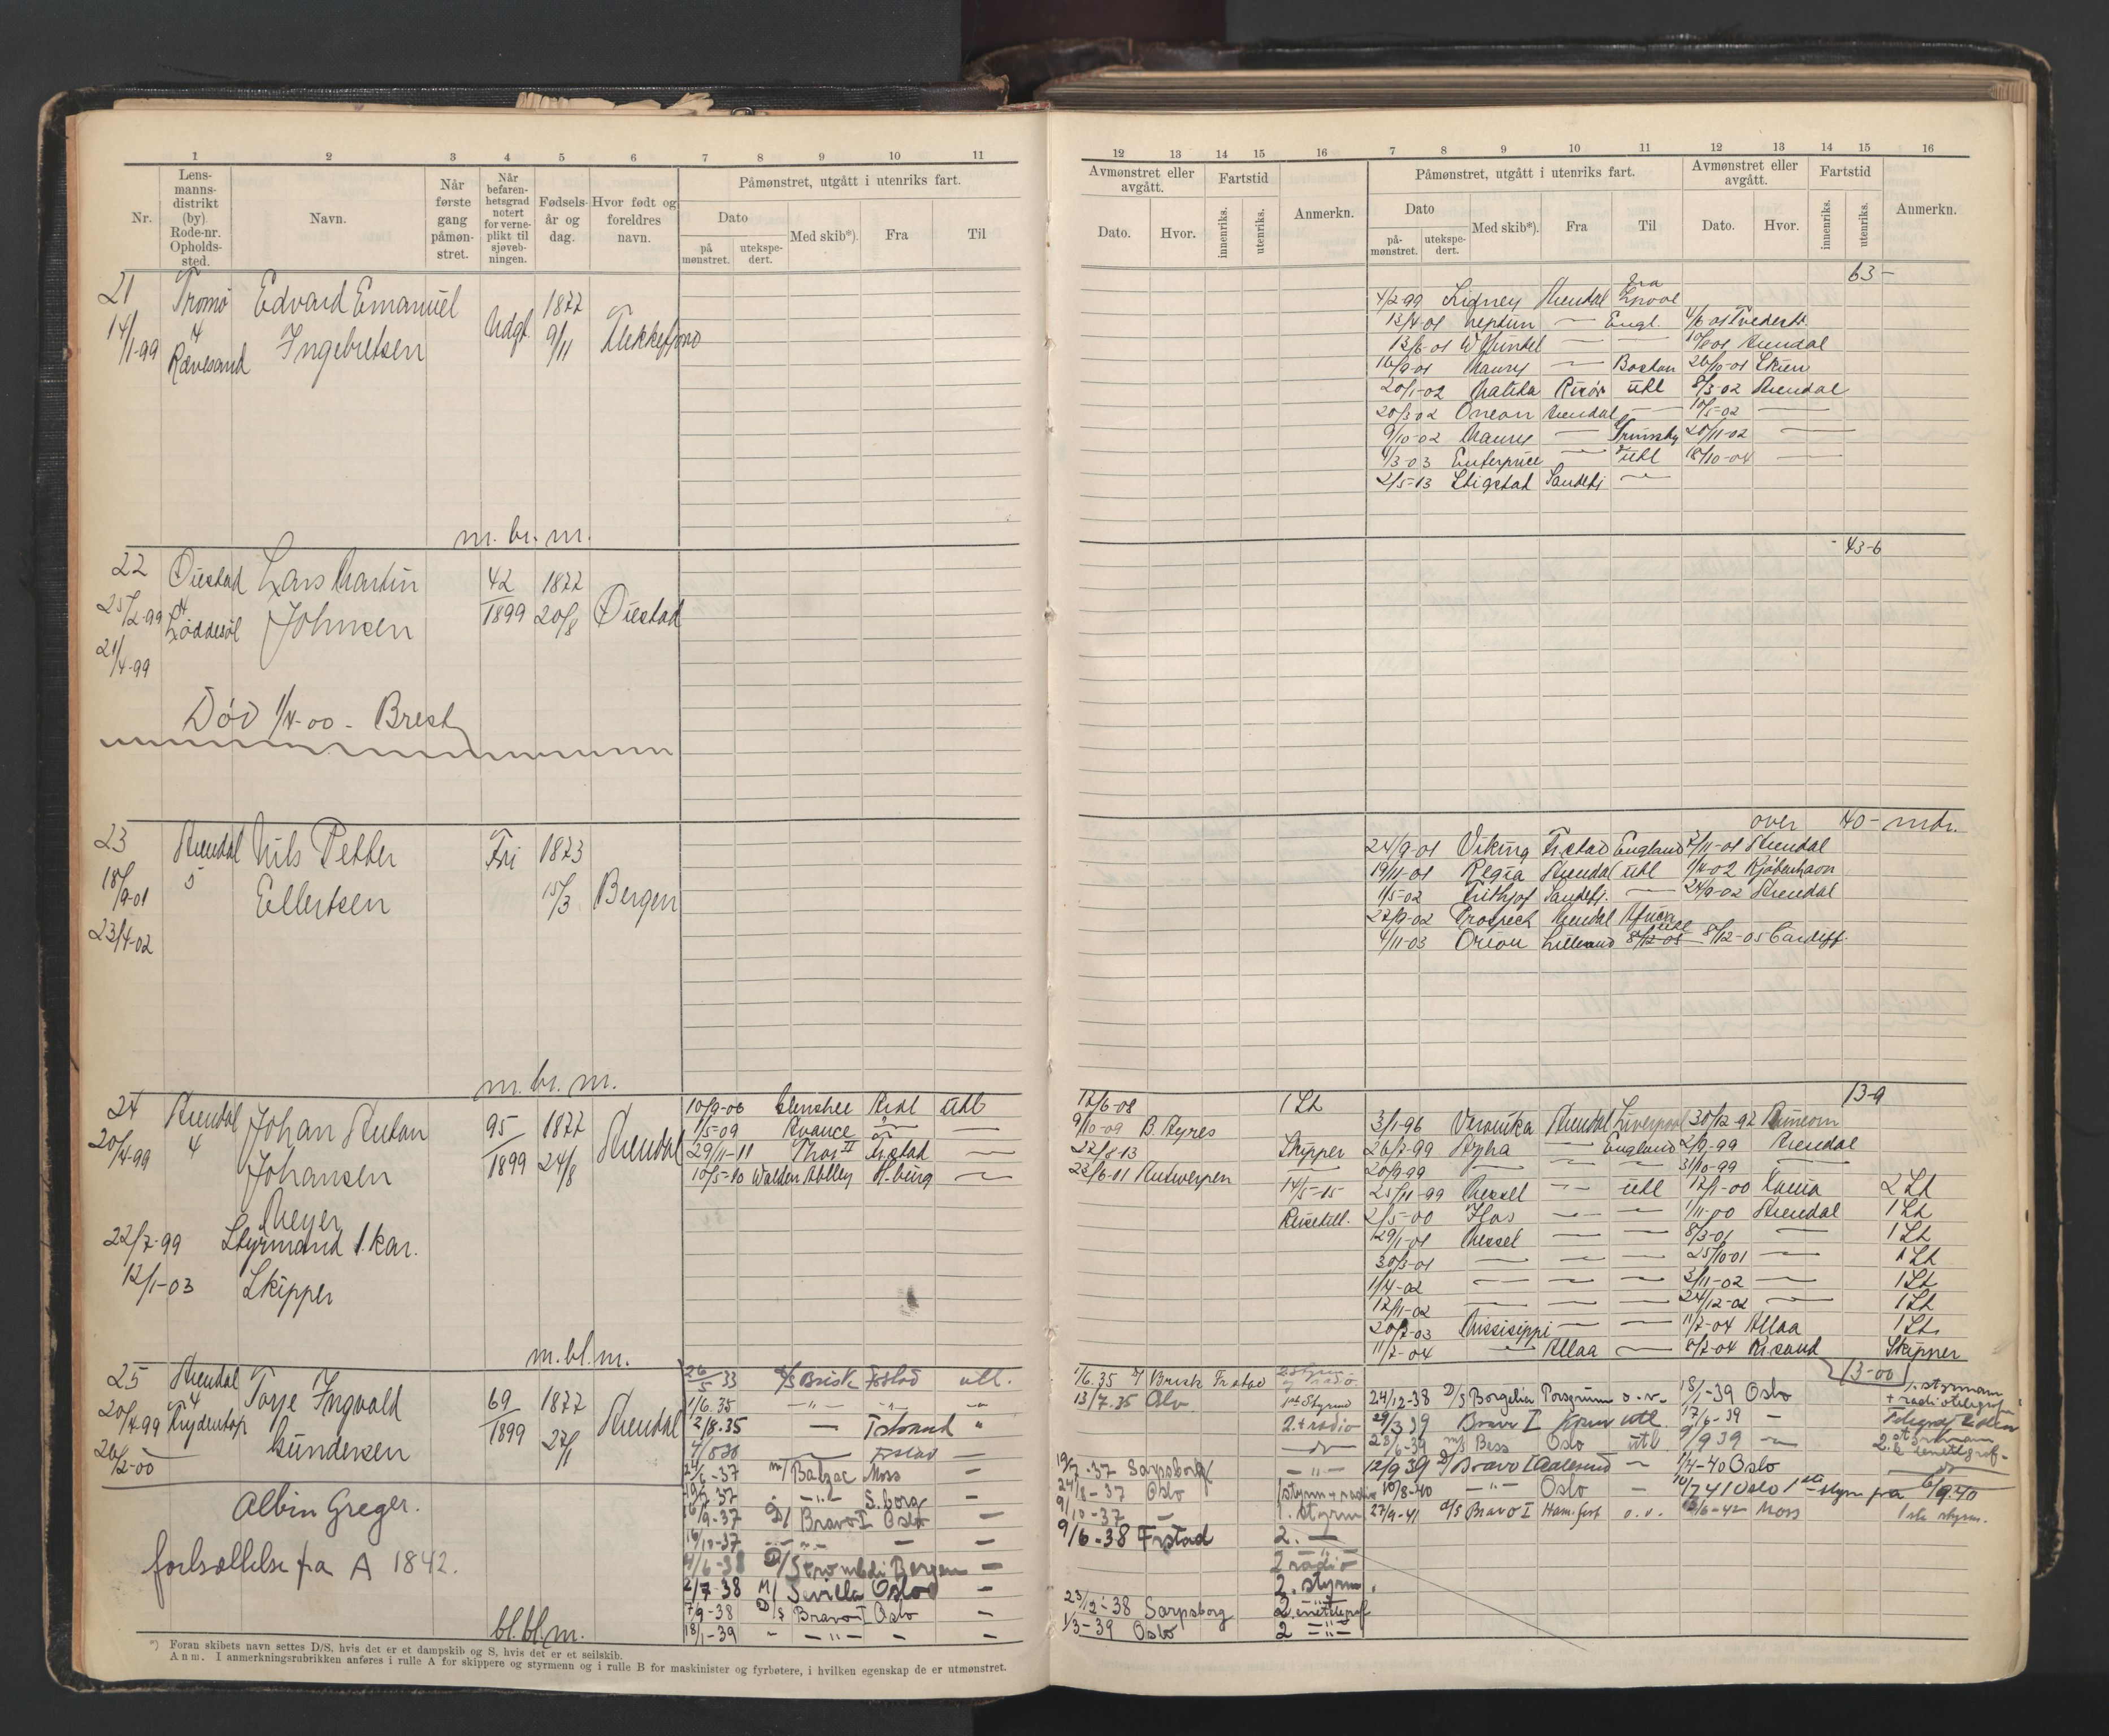 1 2 3 4 5 6 7 8 9 10 11
Nr.
Lens-
manns-
distrikt
(by)
Rode-nr.
Opholds-
sted.
Navn.
Når
første
gang
påmøn-
stret.
Når
befaren-
hetsgrad
notert
for verne-
plikt til
sjøveb-
ningen.
Fødsels-
år og
dag.
Hvor født og
foreldres
navn.
Påmønstret, utgått i utenriks fart.
Dato
på
mønstret.
utekspe-
dert.
Med skib*).
Fra
Til
21 Tromø Edvard Emanuel 1877
14/1-99 4 Ingebretsen Udgt 9/11 Flekkefjord
Rævesand
m. br. m.
22 Øiestad Lars Martin 42 1877
25/2-99 4 Johnsen 1899 20/8 Øiestad
Løddesøl
21/4-99
Død 1/4-00 - Brest
23 Arendal Nils Petter Fri 1873
18/9-01 5 Ellertsen 15/3 Bergen
23/4-02
m. br. m.
24 Arendal Johan Anton 95 1877 Arendal
20/4-99 4 Johansen 1899 24/8
Meyer
22/7-99 Styrmand 1 kar.
12/1-03 Skipper
10/9-06 Glenshee Ardl Utl
1/5-09 Avance
29/11-11 Thor II Fr.stad
10/5-10 Walden Abbey H.burg
m. bl. m.
25 Arendal Torje Ingvald 69 1877 Arendal
20/7-99 4 Gundersen 1899 27/1
26/2-00
Albin Greger.
fortsættelse fra A 1842.
bl. bl. m.
26/5 33 D/S Brisk Fr.stad utl.
1/6.35 -"-
2/8.35 — Tstrand "
— Frstad —
24/6-37 M/ Balzac Moss —
19/7 37 -"- S.borg —
16/9-37 D/ Bravo I Oslo —
16/10-37 -"- — —
4/6-38 D/S Stromboli Bergen —
2/7-38 M/ Sevilla Oslo —
7/9-38 D/S Bravo I Oslo —
18/1-39 " -"- — —
*) Foran skibets navn settes D/S, hvis det er et dampskib og S, hvis det er et seilskib.
Anm. I anmerkningsrubrikken anføres i rulle A for skippere og styrmenn og i rulle B for maskinister og fyrbøtere, i hvilken egenskap de er utmønstret.
12 13 14 15 16 7 8 9 10 11 12 13 14 15 16
Avmønstret eller
avgått.
Dato.
Hvor.
Fartstid
innenriks.
utenriks.
Anmerkn.
Påmønstret, utgått i utenriks fart.
Dato
på-
mønstret.
utekspe-
dert.
Med skib*).
Fra
Til
Avmønstret eller
avgått.
Dato.
Hvor.
Fartstid
innenriks.
utenriks.
Anmerkn.
63-
4/2-99 Sidney Arendal fra Lpool
13/4-01 Neptun — Engl. 4/6-01 Tvedestr.
13/6-01 — — 10/8 01 Arendal
16/9-01 Maury — Boston 26/10-01 Skien
20/1-02 Matilda Risör utl 8/3-02 Arendal
20/3 02 Arendal — 10/5-02 —
9/10-02 Maury — Grimsby 20/11-02 —
1/3-03 Enterprice — utl 18/10-04 —
2/5-13 Stigstad Sandefj —
43-6
over 40- mdr.
24/9-01 Viking Fr.stad England 2/11-01 Arendal
19/11-01 Regia Arendal utl 1/4-02 Kjöbenhavn
1/5-02 Frithjof Sandefj. — 24/9-02 Arendal
27/9-02 Prospect Arendal Africa
4/11-03 Orion Lillesand utl 8/12-05 8/12-05 Cardiff
13-9
17/6-08 1 St
9/10-09 B. Ayres
22/8-13 Skipper
23/6-01 Antwerpen
14/5-15
3/1-96 Veronika Arendal Liverpool 30/12-97 Runcorn
26/7-99 — England 2/9-99 Arendal
20/9-99 — 31/10-99 —
25/11-99 Messel — utl 12/1-00 2 St
2/5-00 — — 1/11-00 Arendal 1 St
29/1-01 Messel — — 8/3-01 — 1 St
30/3-01 — — — 25/10-01 — 1 St
1/4-02 — — — 3/11-02 — 1 St
12/11-02 — — — 24/12-02 — 1 St
20/7-03 Missisippi — — 11/7-04 Allaa 1 St.
11/7-04 — Allaa — 8/7-04 Krsand Skipper
13-00
1/6.35 D/ Brisk Frstad
13/7.35 Oslo 1ste Styrm
2. + radio
19/7-37 Sarpsborg -"-
24/8-37 Oslo 1 styrm + radio
9/10-37 — 1. styrm
9/6-38 Frstad 2. —
2 radio
2. styrm.
23/12-38 Sarpsborg
1/3-39 Oslo 2 -"-
24/12-38 D/S Borgelia Porsgrunn o.v. 18/1-39 Oslo 1. styrmann
+ radiotelegraf
29/3 39 Bravo I utl 7/6-39 —
23/6-39 M/S Bess Oslo utl 9/9 39 — 2. styrmann
12/9 39 D/ Bravo I Aalesund — 1/4-40 Oslo
10/8-40 -"- Oslo — 10/7 41 Oslo 1ste styrm fra 6/9.40
27/9-41 D/S Bravo I Ham.fest o.v. Moss 1ste styrm.